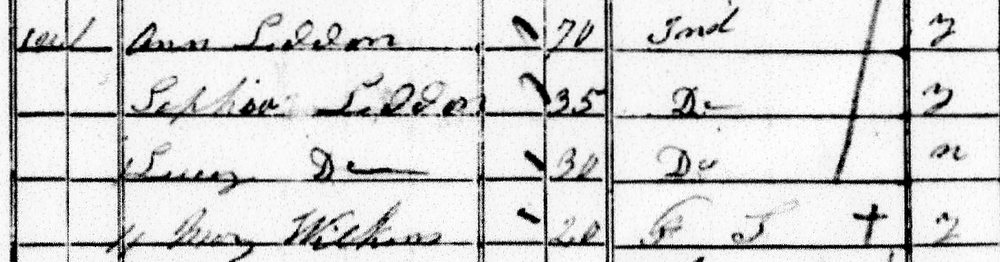 Ann Liddon 70 Ind y
Sophia Liddon 35 Do y
Lucy Do 30 Do n
Mary Wilkins 20 F S y